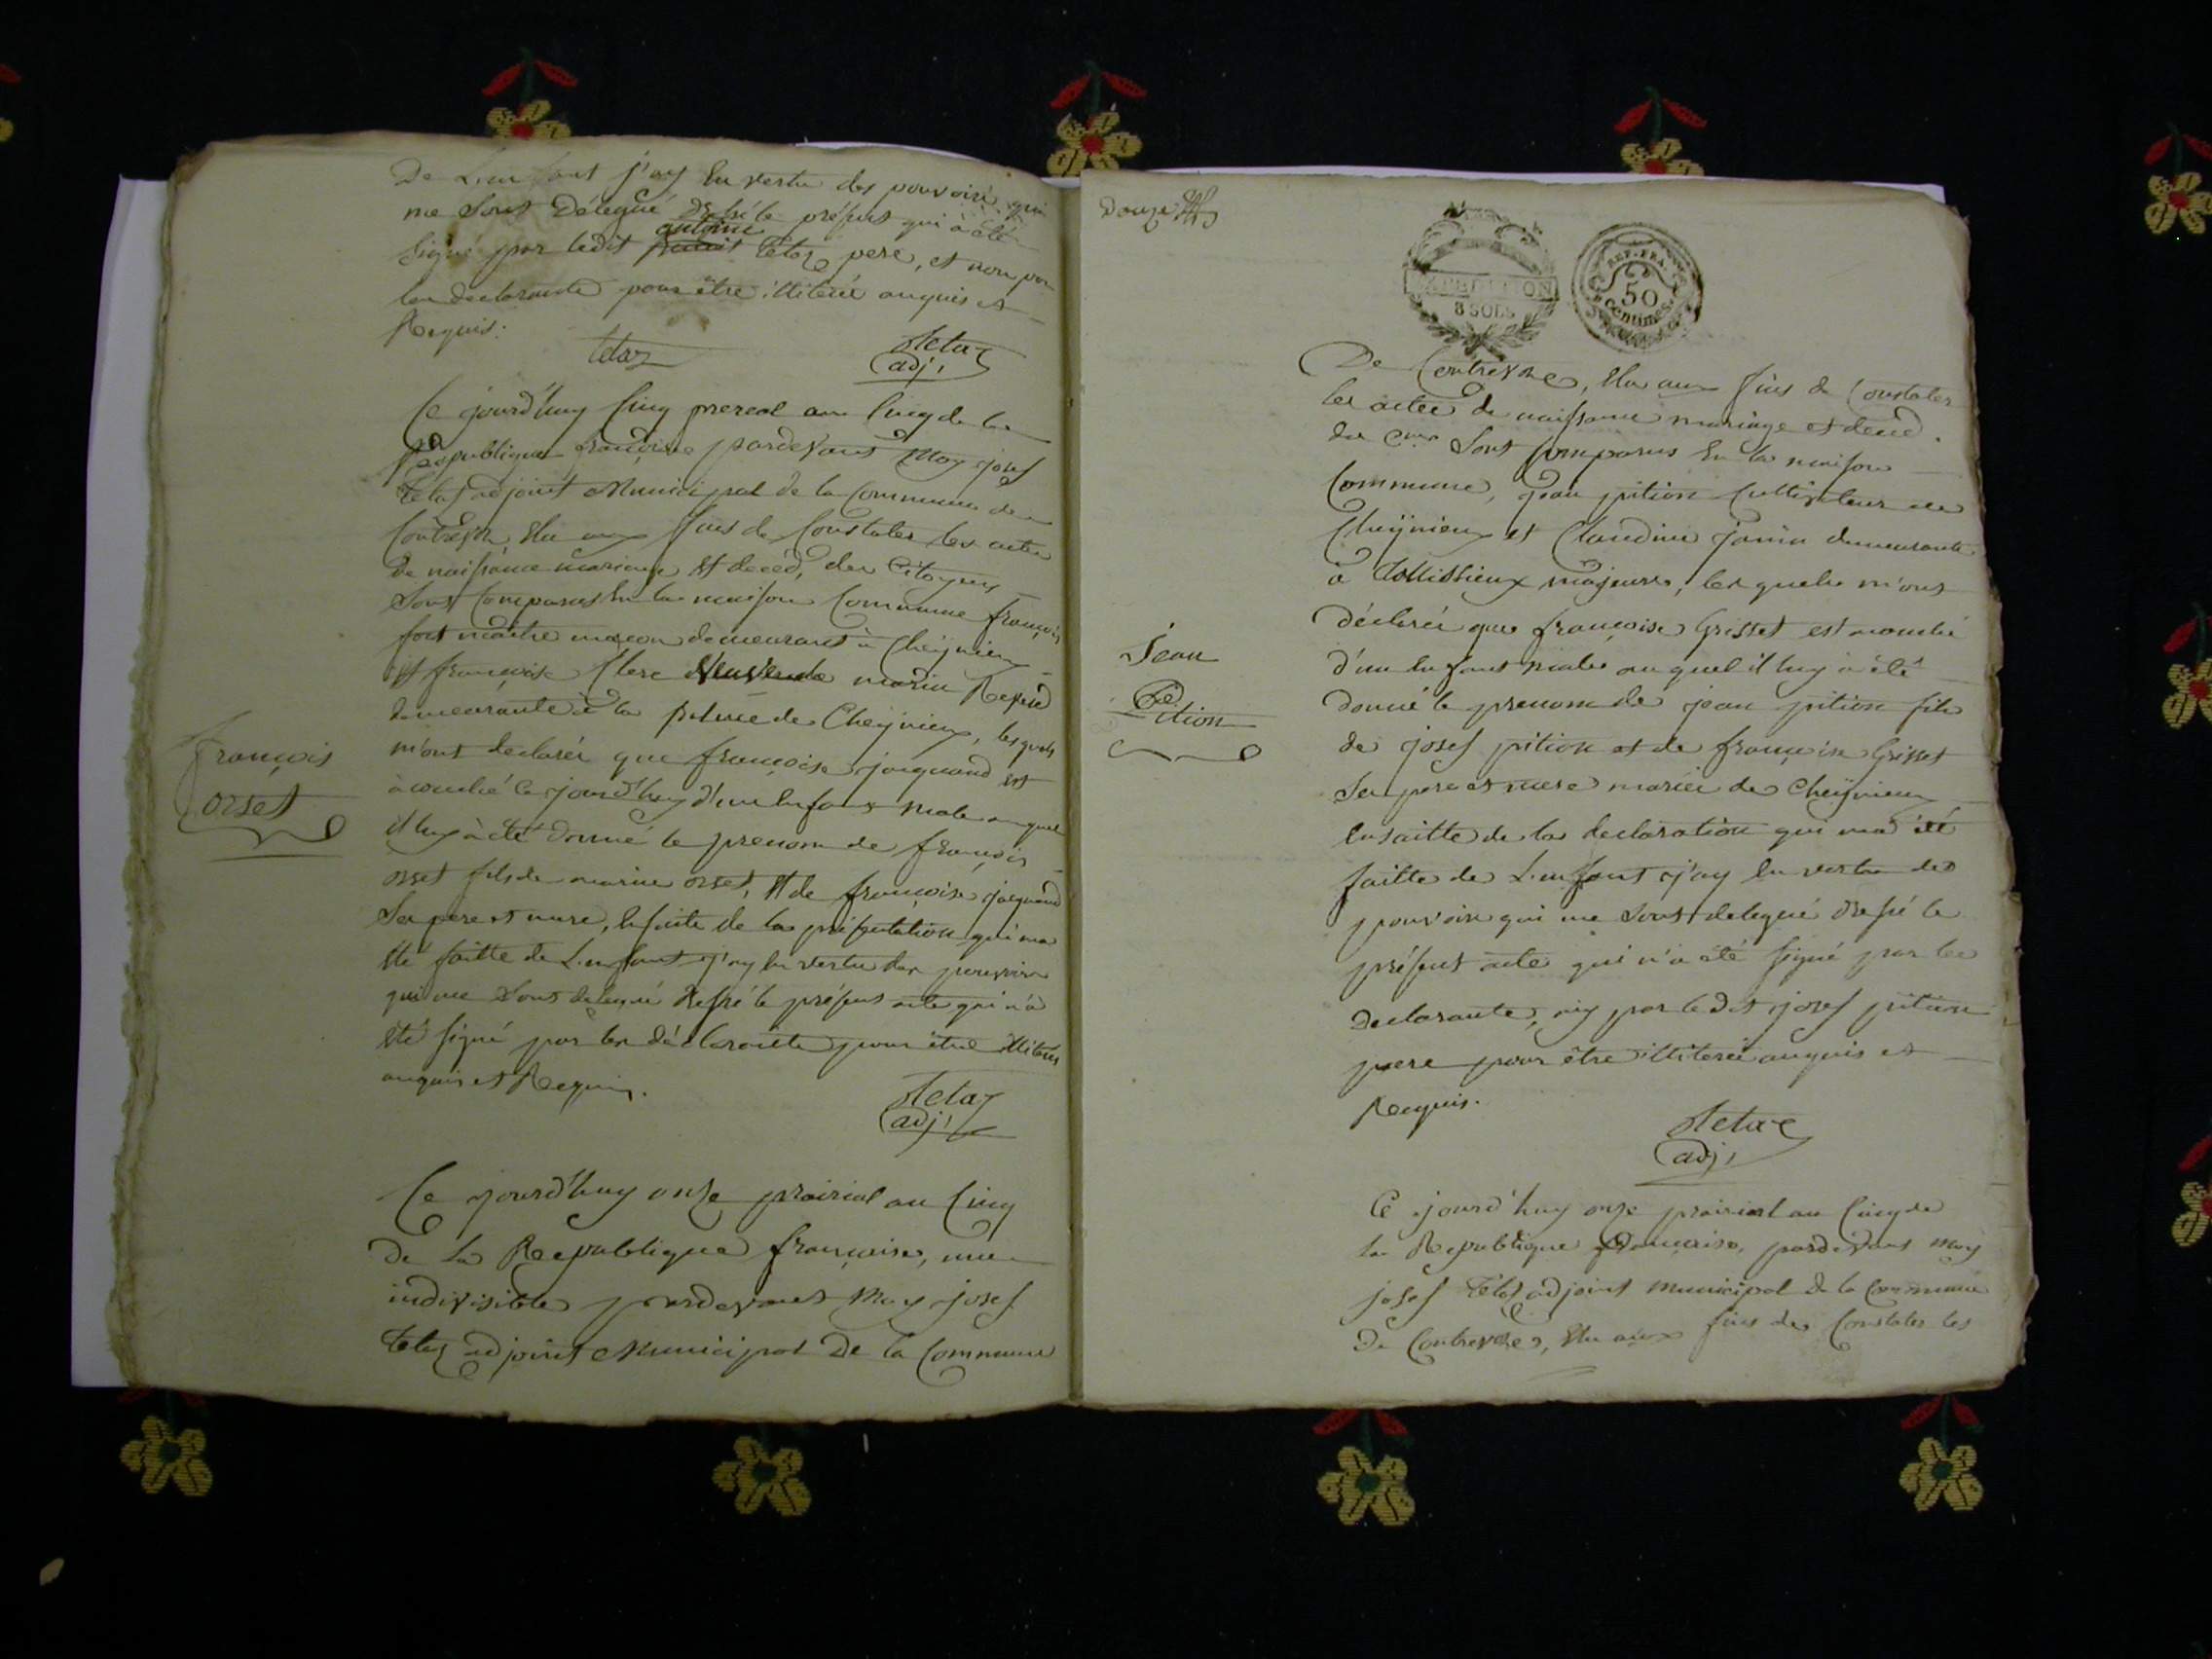 De L'enfant j'ay En vertu des pouvoirs qui
me Sont Délegué Dressé le présent qui à été
antoine
signé par ledit Tetaz pere, et non par
les declarants pour être illiteré enquis et
Requis.
tetaz
JTetaz
adj.
Ce jourd'huy Cinq prereal an Cinq de la
Republique française pardevant Moy josef
Tetaz adjoint Municipal de la Commune de
Contrevoz Elu aux fins de Constater les actes
De naissance mariage Et decéd, des Citoyens
Sont Comparus En la maison Commune françois
fort maitre maçon demeurant à Cheÿnieu
Et françoise Clerc
demeurante à la de Cheÿnieu, lesquels
m'ont declarés que françoise jacquand est
acouché Ce jourd'huy d'un Enfant male auquel
il luy à Eté donné le prenom de françois
orset fils de marin orset, Et de françoise jacquand
Ses pere et mere, Ensuite de la présentation qui ma
Eté faitte de L'enfant j'ay En vertu des pouvoirs
qui me Sont delegué dressé le présent acte qui n'a
Eté signé par les déclarants pour être illiterés
enquis et Requis.
françois
orset
JTetaz
adj.
Ce jourd'huy onze prairial an Cinq
De La Republique françoise, une
indivisible pardevant Moy josef
Tetaz adjoint Municipal De la Commune
Douze
EXPEDITION
8 SOLS
REP. FRA.
50
centimes
De Contrevoz, Elu aux fins de Constater
les actes de naissance mariage et decéd.
des Cens Sont Comparus En la maison
Commune, jean pition Cultivateur de
Cheÿnieu et Claudine janin demeurante
à majeurs, lesquels m'ont
Déclarés que françoise Grisset est acouché
d'un Enfant male auquel il luy à été
donné le prenom de jean pition fils
de josef pition et de françoise Grisset
Ses pere et mere mariés de Cheÿnieu
Ensuitte de la declaration qui ma été
faitte de L'enfant j'ay En vertu des
pouvoirs qui me Sont delegué dressé le
présent acte qui n'a été signé par les
Declarants, ny par ledit josef pition
pere pour être illiterés enquis et
Requis.
Jean
Pition
JTetaz
adj.
Ce jourd'huy onze prairial an Cinq de
la Republique françoise, pardevant Moy
josef Tetaz adjoint municipal de la Commune
De Contrevoz, Elu aux fins de Constater les